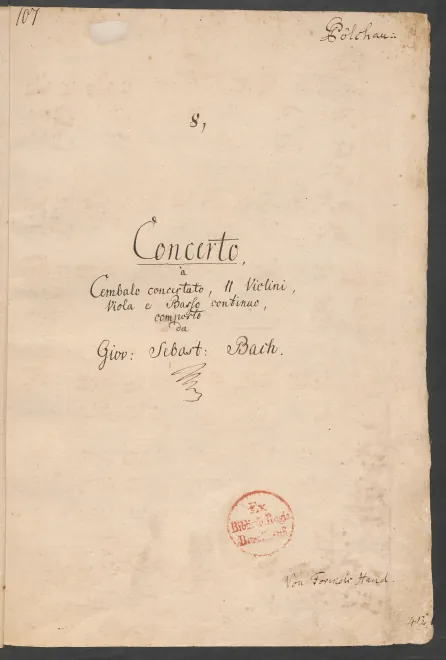 107
Pölchau:
8,
Concerto,
à
Cembalo concertato, II Violini,
Viola e Basso continuo,
composto
da
Giov: Sebast: Bach.
Ex
Biblioth. Regia
Berolinens.
Von Forkels Hand.